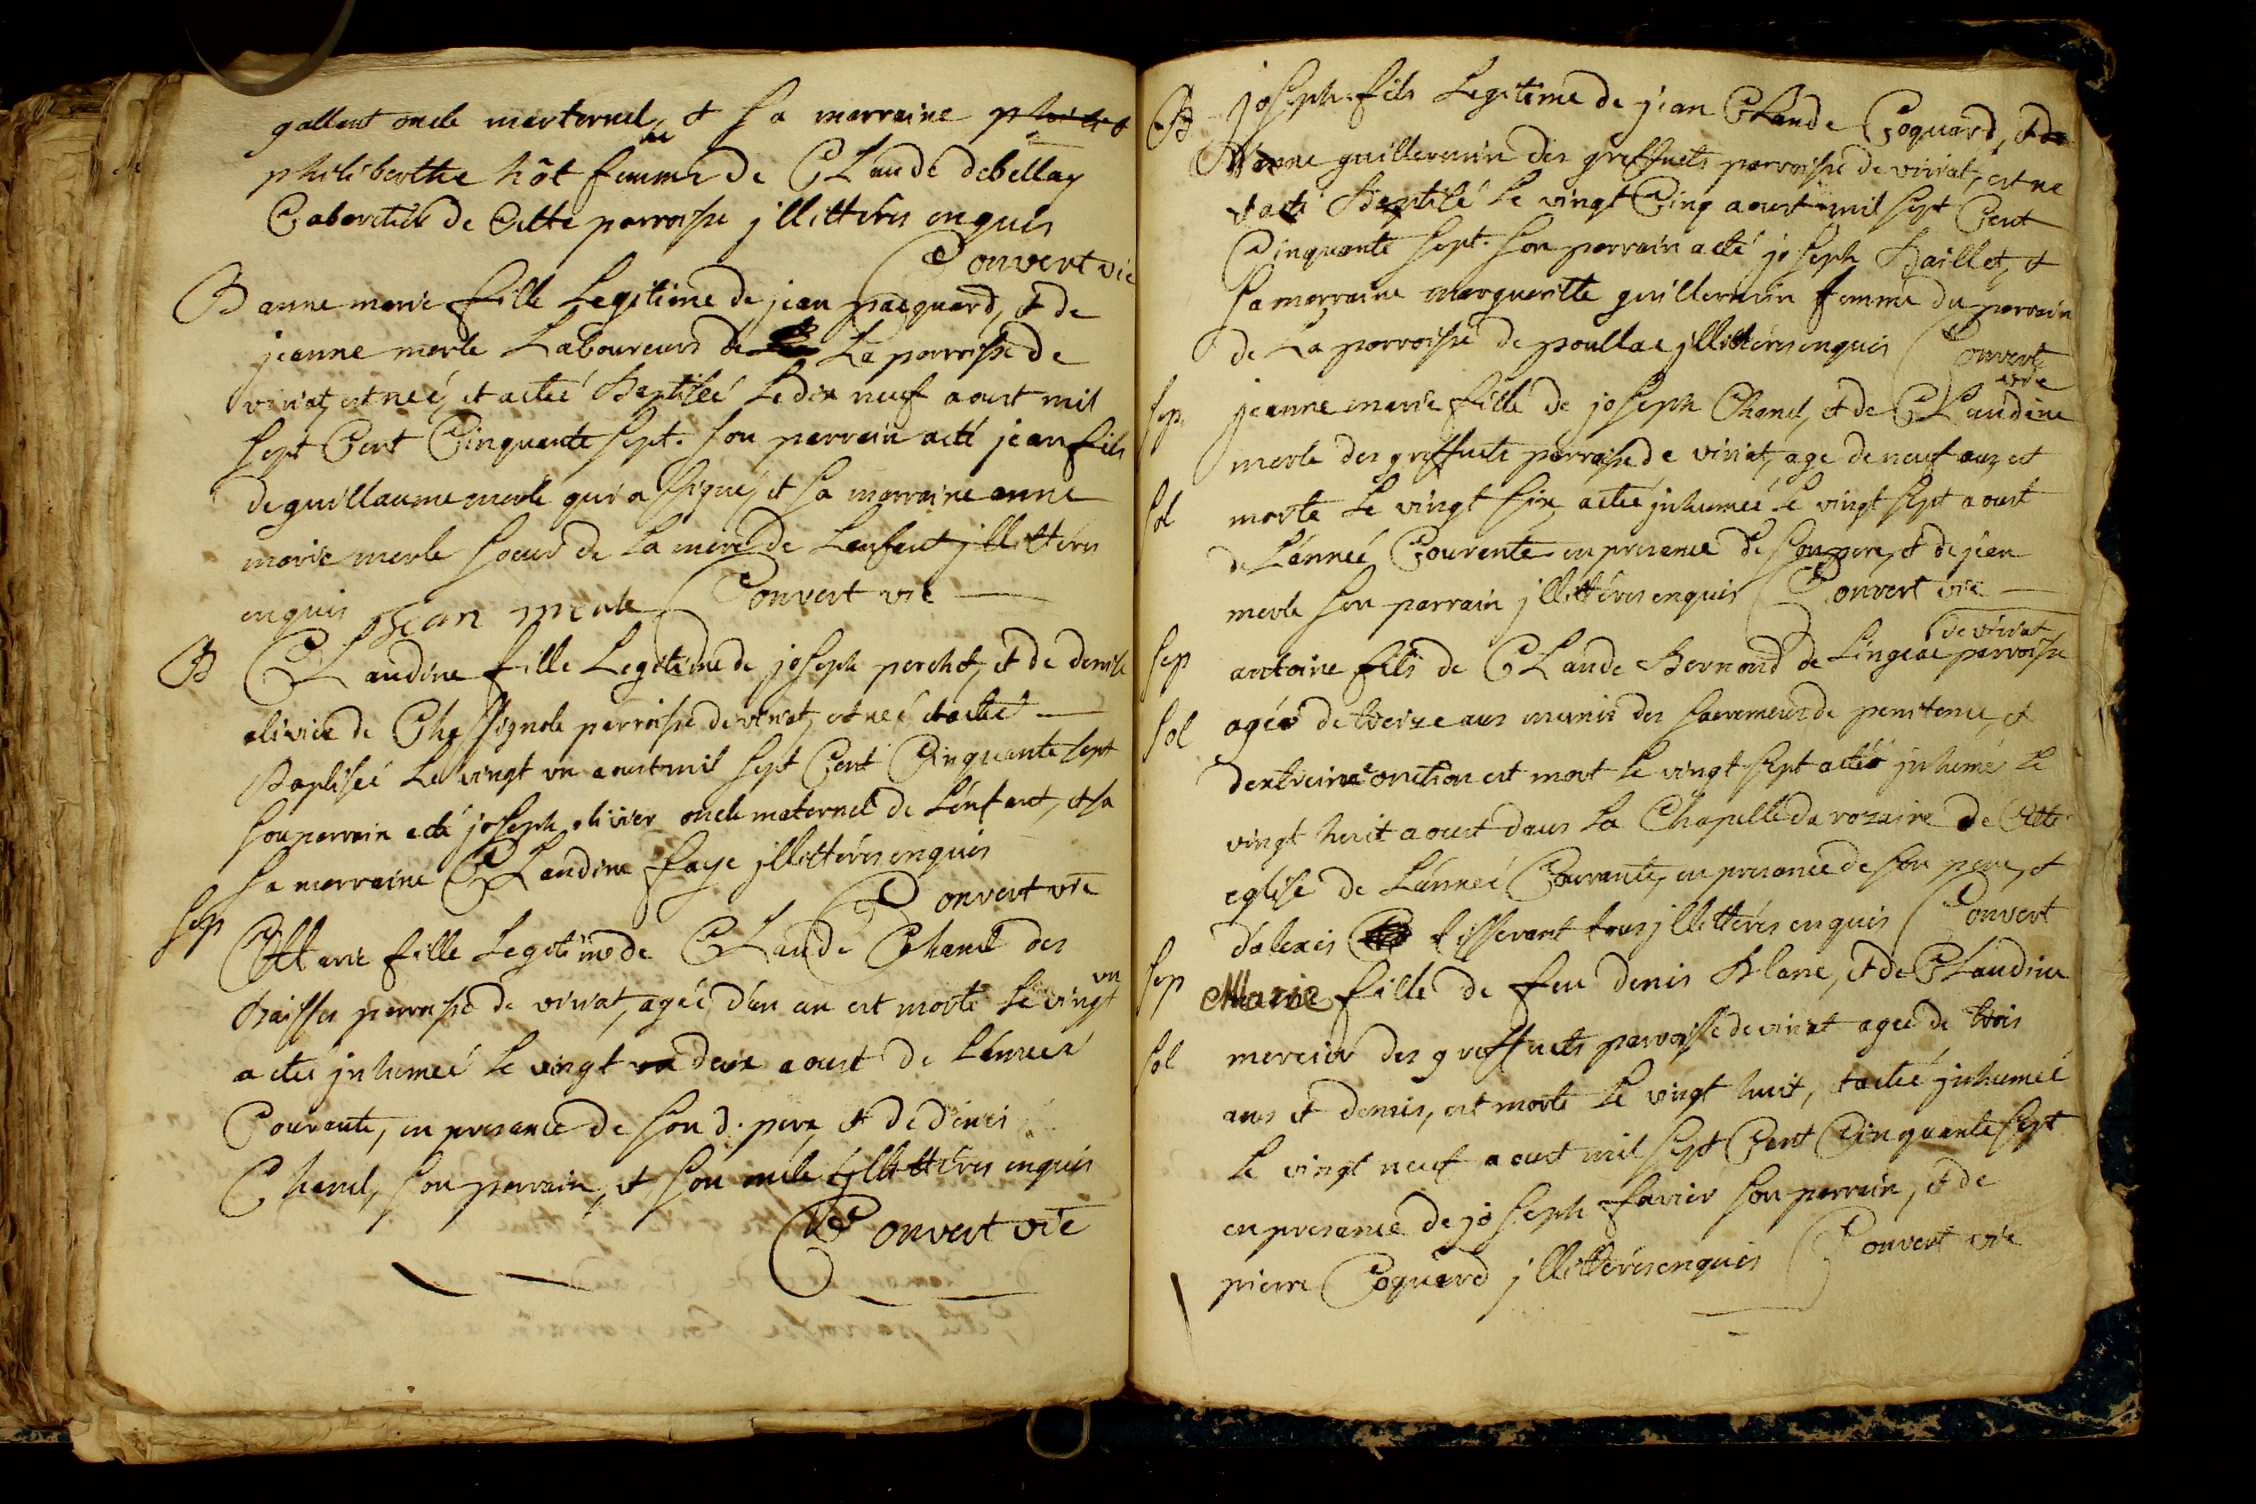 gallant oncle marternel, et sa marraine
philiberthe hôt femme de CLaude debellay
Cabaretier de Cette parroisse jllitterés enquis
Convert vic
B anne marie fille Legitime de jean pacquard, et de
jeanne merle Laboureurs de La parroisse de
viriat, est neé, et aeteé Baptiseé Le dix neuf aoust mil
sept Cent Cinquante sept. son parrain aeté jean fils
de guillaume merle qui a signé, et sa marraine anne
marie merle soeur de La mere de Lenfant jllitterés
enquis jean merle Convert vic
B CLaudine fille Legitime de joseph perchet, et de denise
olivier de Chassignole parroisse de viriat, est neé, et aeteé
Baptiseé Le vingt un aoust mil sept Cent Cinquante sept
son parrain aeté joseph olivier oncle maternel de Lénfant, et sa
sa marraine CLaudine faye jllitterés enquis
Convert vic
sep Marie fille Legitime de CLaude Chanel des
baisses parroisse de viriat, ageé d'un an est morte Le vingt un
a eteé jnhumeé Le vingt deux aoust de Lénneé
Courante, en presance de son d. pere, et de denis
Chanel, son parrain, et son oncle jllitterés enquis
Convert vic
B joseph fils Legitime de jean CLaude Coquard, et de
anne guillermin des greffiets parroisse de viriat, est né
et aeté Baptisé Le vingt Cinq aoust mil sept Cent
Cinquante sept. son parrain aeté joseph Baillet, et
sa marraine margueritte guillermin femme du parrain
de La parroisse de poulliat jllitterés enquis Convert
vic
sep jeanne marie fille de joseph Chanel, et de CLaudine
merle des greffiets parroisse de viriat, age de neuf ans est
sol morte Le vingt six aeteé jnhumeé Le vingt sept aoust
de Lánneé Courante en presance de son pere, et de jean
merle son parrain jllitterés enquis Convert vic
de viriat
sep antoine fils de CLaude Bernard de Lingeat parroisse
sol agé de treize ans munis des sacremens de penitence, et
dextreme onction est mort Le vingt sept aeté jnhumé Le
vingt huit aoust dans La Chapelle du rozaire de Cette
eglise de Lánneé Courante, en presance de son pere, et
d'alexis tisserant tous jllitterés enquis Convert
sep Marie fille de feu denis Blanc, et de CLaudine
sol mercier des greffiets parroisse de viriat ageé de trois
ans et demis, est morte Le vingt huit, et aeteé jnhumeé
Le vingt neuf aoust mil sept Cent Cinquante sept
en presance de joseph favier son parrain, et de
pierre Coquard jllitterés enquis Convert vic